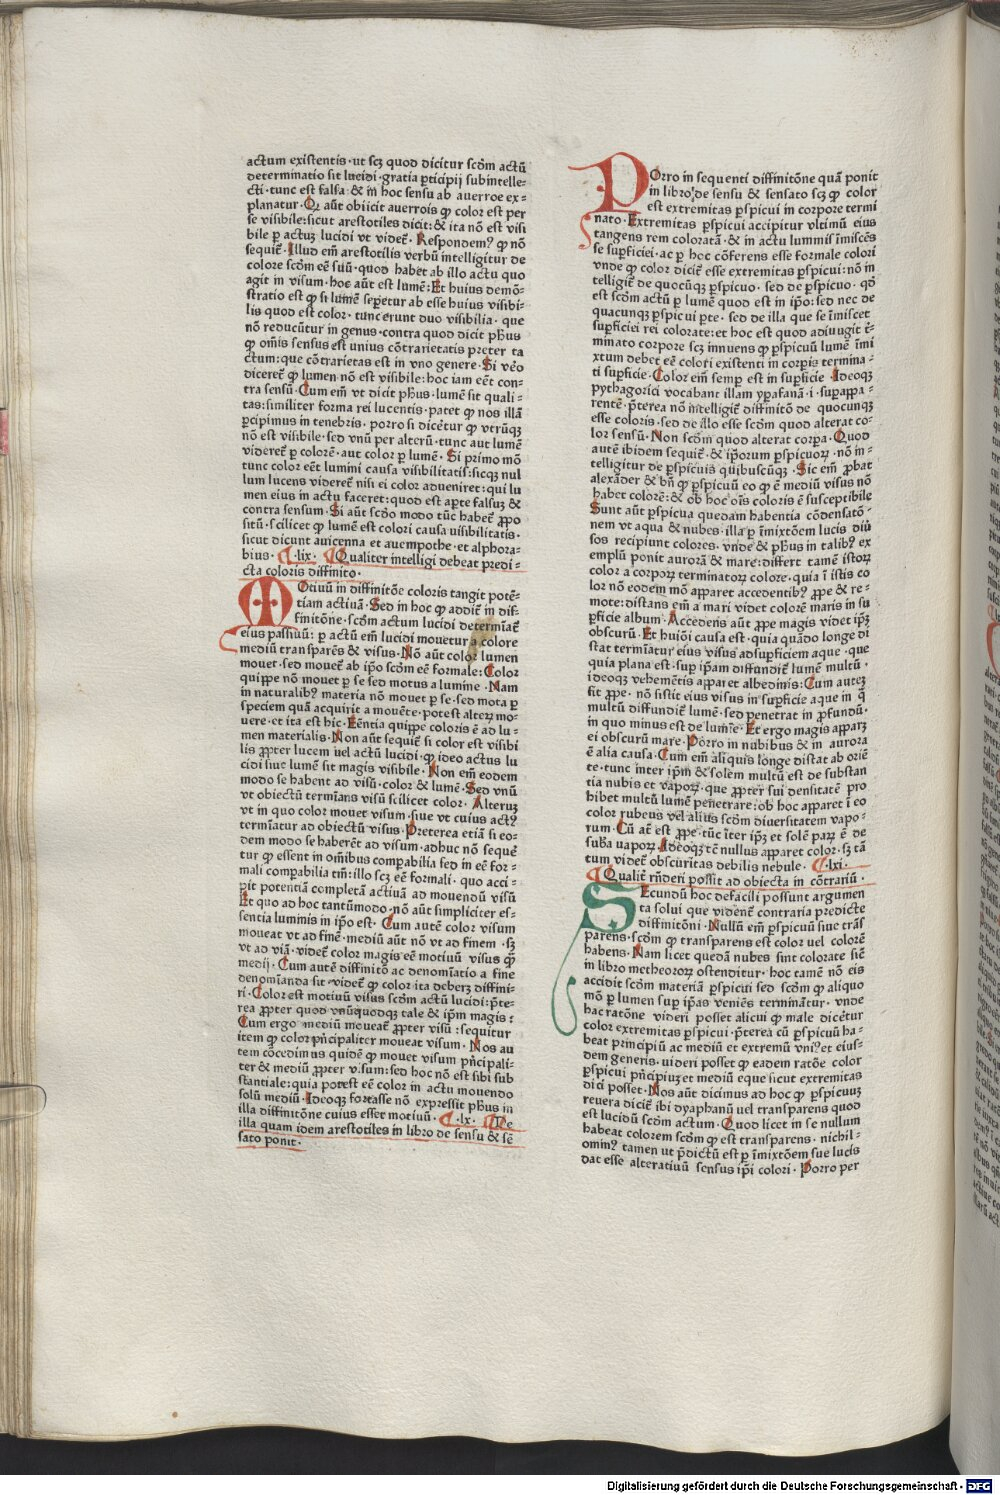 actum existentis · ut scꝫ quod dicitur scōm actū
determinatio sit lucidi · gratia ꝑticipij subintelle-
cti · tunc est falsa: & in̄ hoc sensu ab auerroe ex=
planatur · Qꝛ aūt obiicit auerrois ꝙ color est per
se visibile: sicut arestotiles dicit: & ita nō est visi
bile ꝑ actuꝫ lucidi vt videt᷑ · Respondem⁹ ꝙ nō
sequit᷑ · Illud em̄ arestotilis verbū intelligitur de
colore scōm eē suū · quod habet ab illo actu quo
agit in visum · hoc aūt est lumē: Et huius demō-
stratio est ꝙ si lumē sepet᷑ur ab esse huius visibi-
lis quod est color · tunc erunt duo visibilia · que
nō reducūtur in genus · contra quod dicit pħus
ꝙ om̄is sensus est unius cōtrarietatis preter ta
ctum: que cōtrarietas est in vno genere · Si ve᷑o
diceret᷑ ꝙ lumen nō est visibile: hoc iam eēt con-
tra sensū · Cum em̄ vt dicit pħus · lumē sit quali-
tas: similiter forma rei lucentis · patet ꝙ nos illā
ꝑcipimus in tenebris · porro si dicet᷑ur ꝙ vtrūqꝫ
nō est visibile · sed vnū per alterū · tunc aut lumē
videret᷑ ꝑ colorē · aut color ꝑ lumē · Si primo mō
tunc color eēt lumini causa visibilitatis: sicqꝫ nul
lum lucens videret᷑ nisi ei color adueniret: qui lu
men eius in actu faceret: quod est aꝑte falsuꝫ &
contra sensum · Si aūt scōo modo tūc habet᷑ ꝓpo
sitū · scilicet ꝙ lumē est colori causa uisibilitatis ·
sicut dicunt auicenna et auempothe · et alphora-
bius · ¶ · lix · ¶ Qualiter intelligi debeat predi-
cta coloris diffinito ·
MOtiuū in diffinitōe coloris tangit potē-
tiam actiuā · Sed in hoc ꝙ addit᷑ in dif-
finitōne · scōm actum lucidi determīat᷑
eius passiuū: ꝑ actū em̄ lucidi mouetur a colore
mediū transparēs & visus · Nō aūt color lumen
mouet · sed mouet᷑ ab ip̄o scōm eē formale: Color
quippe nō mouet ꝑ se sed motus a lumine · Nam
in naturalib⁹ materia nō mouet ꝑ se · sed mota ꝑ
speciem quā acquirit a mouēte · potest alteꝝ mo-
uere · et ita est hic · Eēntia quippe coloris ē ad lu-
men materialis · Non aūt sequit᷑ si color est visibi
lis ꝓpter lucem uel actū lucidi · ꝙ ideo actus lu
cidi siue lumē sit magis visibile · Non em̄ eodem
modo se habent ad visū · color & lumē · Sed vnū
vt obiectū termīans visū scilicet color · Alteruꝫ
vt in quo color mouet visum · siue vt cuius act⁹
termīatur ad obiectū visus · Preterea etiā si eo-
dem modo se haberēt ad visum · adhuc nō seque᷑
tur ꝙ essent in om̄ibus compabilia sed in eē for-
mali compabilia tm̄: illo scꝫ eē formali · quo acci-
pit potentiā completā actiuā ad mouendū visū
Et quo ad hoc tantūmodo · nō aūt simpliciter es-
sentia luminis in ip̄o est · Cum autē color visum
moueat vt ad finē · mediū aūt nō vt ad finem · sꝫ
vt ad viā · videt᷑ color magis eē motiuū visus ꝙ̄
medij · Cum autē diffinitō ac denomīatio a fine
denomīanda sit · videt᷑ ꝙ color ita debeꝫ diffini-
ri · Color est motiuū visus scōm actū lucidi: p̄te-
rea ꝓpter quod vnūquodqꝫ tale & ip̄m magis:
Cum ergo mediū moueat᷑ ꝓpter visū: sequitur
item ꝙ color p̄ncipaliter moueat visum · Nos au
tem cōcedimus quidē ꝙ mouet visum p̄ncipali-
ter & mediū ꝓpter visum: sed hoc nō est sibi sub
stantiale: quia potest eē color in actu mouendo
solū mediū · Ideoqꝫ fortasse nō expressit pħus in
illa diffinitōne cuius esset motiuū · ¶ · lx · ¶ De
illa quam idem arestotiles in libro de sensu & sē
sato ponit ·
POrro in sequenti diffinitōne quā ponit
in libro de sensu & sensato scꝫ ꝙ color
est extremitas ꝑspicui in corpore termi
nato · Extremitas ꝑspicui accipitur vltimū eius
tangens rem coloratā · & in actu luminis īmiscēs
se suꝑficiei · ac ꝑ hoc cōferens esse formale colori
vnde ꝙ color dicit᷑ esse extremitas ꝑspicui: nō in
telligit᷑ de quocūqꝫ ꝑspicuo · sed de ꝑspicuo · qd̄
est scōm actū ꝑ lumē quod est in ip̄o: sed nec de
quacunqꝫ ꝑspicui ꝑte · sed de illa que se īmiscet
suꝑficiei rei colorate: et hoc est quod adiungit t᷑-
minato corpore scꝫ innuens ꝙ ꝑspicuū lumē īmi
xtum debet eē colori existenti in corpis termina-
ti suꝑficie · Color em̄ semꝑ est in suꝑficie · Ideoqꝫ
pythagorici vocabant illam ypafanā · i · suꝑappa-
rentē · p̄terea nō intelligit᷑ diffinitō de quocunqꝫ
esse coloris · sed de illo esse scōm quod alterat co-
lor sensū · Non scōm quod alterat corꝑa · Quod
autē ibidem sequit᷑ · & ip̄orum ꝑspicuoꝝ · nō in-
telligitur de ꝑspicuis quibuscūqꝫ · Sic em̄ ꝓbat
alexāder & bn̄ ꝙ ꝑspicuū eo ꝙ ē mediū visus nō
habet colorē: & ob hoc oīs coloris ē susceptibile
Sunt aūt ꝑspicua quedam habentia cōdensatō-
nem vt aqua & nubes · illa ꝑ īmixtōem lucis diū
sos recipiunt colores · vnde & pħus in talib⁹ ex
emplū ponit aurorā & mare: differt tamē istoꝝ
color a corpoꝝ terminatoꝝ colore · quia ī istis co
lor nō eodem mō apparet accedentib⁹ ꝓpe & re-
mote: distans em̄ a mari videt colorē maris in su
ꝑficie album · Accedens aūt ꝓpe magis videt ip̄ꝫ
obscurū · Et hui⁹ōi causa est · quia quādo longe di
stat termīatur eius visus ad suꝑficiem aque · que
quia plana est: suꝑ ip̄am diffundit᷑ lumē multū ·
ideoqꝫ vehemētis apparet albedinis: Cum auteꝫ
fit ꝓpe · nō sistit eius visus in suꝑficie aque in q̄
multū diffundit᷑ lumē · sed penetrat in ꝓfundū ·
in quo minus est de lumīe · Et ergo magis apparꝫ
ei obscurū mare · Porro in nubibus & in aurora
ē alia causa · Cum em̄ aliquis longe distat ab oriē
te · tunc inter ip̄m & solem multū est de substan
tia nubis et vapoꝝ · que ꝓpter sui densitatē pro
hibet multū lumē penetrare: ob hoc apparet ī eo
color rubeus vel alius scōm diuersitatem vapo-
rum · Cū at᷑ est ꝓpe · tūc īter ip̄ꝫ et solē paꝝ ē de
suba vapoꝝ · Adeoqꝫ tē nullus apparet color · sꝫ tā
tum videt᷑ obscuritas debilis nebule · ¶ · lxi ·
¶ Qualit᷑ rn̄deri possit ad obiecta in cōtrariū ·
SEcundū hoc de facili possunt argumen
ta solui que vident᷑ contraria predicte
diffinitōni · Nullū em̄ ꝑspicuū siue trās
parens · scōm ꝙ transparens est color uel colorē
habens · Nam licet quedā nubes sint colorate sic᷑
in libro metheoroꝝ ostenditur · hoc tamē nō eis
accidit scōm materiā ꝑspicui sed scōm ꝙ aliquo
mō ꝑ lumen suꝑ ip̄as veniēs termīnat᷑ur · vnde
hac ratōne videri posset alicui ꝙ male dicet᷑ur
color extremitas ꝑspicui · p̄terea cū ꝑspicuū ha-
beat principiū ac mediū et extremū vni⁹ et eius-
dem generis · uideri posset ꝙ eadem ratōe color
ꝑspicui p̄ncipiuꝫ et mediū eque sicut extremitas
dici posset · Nos aūt dicimus ad hoc ꝙ ꝑspicuuꝫ
reuera dicit᷑ ibi dyaphanū uel transparens quod
est lucidū scōm actum · Quod licet in se nullum
habeat colorem scōm ꝙ est transparens · nichil-
omin⁹ tamen ut p̄dictū est ꝑ īmixtōem sue lucis
dat esse alteratiuū sensus ip̄i colori · Porro per
Digitalisierung gefördert durch die Deutsche Forschungsgemeinschaft - DFG